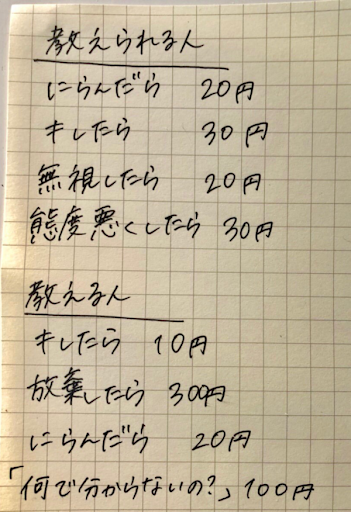 教えられる人
にらんだら 20円
キレたら 30円
無視したら 20円
態度悪くしたら 30円
教える人
キレたら 10円
放棄したら 300円
にらんだら 20円
「何で分からないの?」 100円